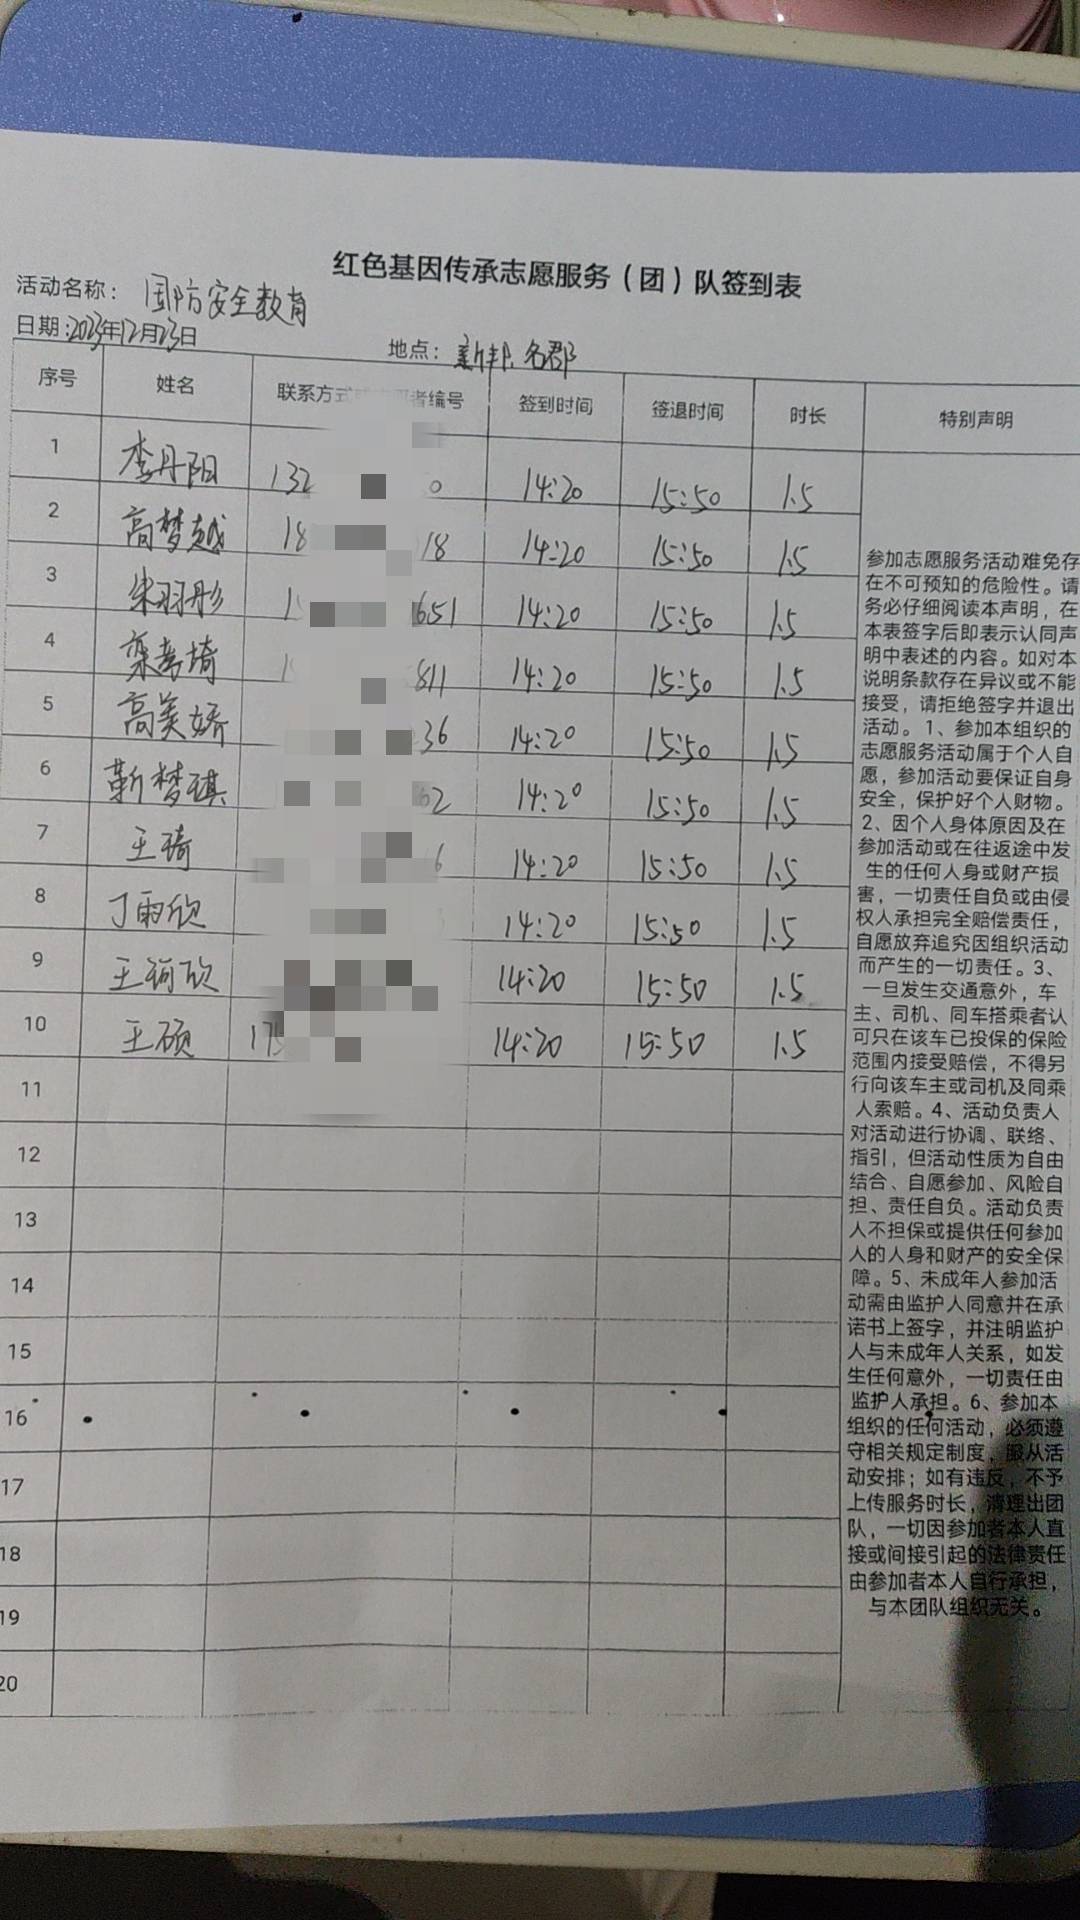 红色基因传承志愿服务（团）队签到表
活动名称： 国防安全教育
日期：2023年12月23日
地点： 新邦名郡
序号 姓名 联系方式 者编号 签到时间 签退时间 时长 特别声明
1 李丹阳 132 0 14:20 15:50 1.5
2 高梦越 18 18 14:20 15:50 1.5
3 朱羽彤 1 651 14:20 15:50 1.5
4 栾 琦 1 811 14:20 15:50 1.5
5 高美娇 36 14:20 15:50 1.5
6 靳梦琪 62 14:20 15:50 1.5
7 王琦 6 14:20 15:50 1.5
8 丁雨欣 14:20 15:50 1.5
9 王 欣 14:20 15:50 1.5
10 王硕 175 14:20 15:50 1.5
11
12
13
14
15
16
17
18
19
20
参加志愿服务活动难免存
在不可预知的危险性。请
务必仔细阅读本声明，在
本表签字后即表示认同声
明中表述的内容。如对本
说明条款存在异议或不能
接受，请拒绝签字并退出
活动。1、参加本组织的
志愿服务活动属于个人自
愿，参加活动要保证自身
安全，保护好个人财物。
2、因个人身体原因及在
参加活动或在往返途中发
生的任何人身或财产损
害，一切责任自负或由侵
权人承担完全赔偿责任，
自愿放弃追究因组织活动
而产生的一切责任。3、
一旦发生交通意外，车
主、司机、同车搭乘者认
可只在该车已投保的保险
范围内接受赔偿，不得另
行向该车主或司机及同乘
人索赔。4、活动负责人
对活动进行协调、联络、
指引，但活动性质为自由
结合、自愿参加、风险自
担、责任自负。活动负责
人不担保或提供任何参加
人的人身和财产的安全保
障。5、未成年人参加活
动需由监护人同意并在承
诺书上签字，并注明监护
人与未成年人关系，如发
生任何意外，一切责任由
监护人承担。6、参加本
组织的任何活动，必须遵
守相关规定制度，服从活
动安排；如有违反，不予
上传服务时长，清理出团
队，一切因参加者本人直
接或间接引起的法律责任
由参加者本人自行承担，
与本团队组织无关。